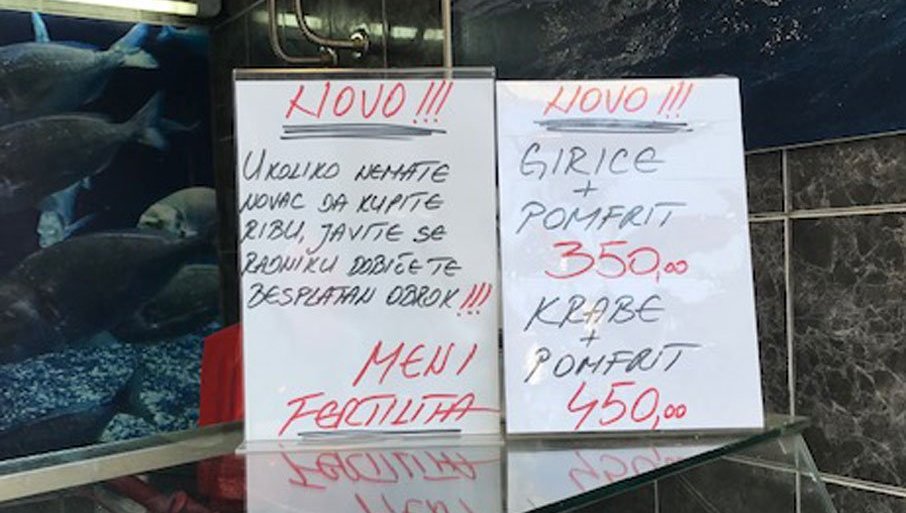 NOVO!!!
UKOLIKO NEMATE
NOVAC DA KUPITE
RIBU, JAVITE SE
RADNIKU DOBIĆETE
BESPLATAN OBROK!!!
MENI
FERTILITA
NOVO!!!
GIRICE
+
POMFRIT
350,00
KRABE
+
POMFRIT
450,00